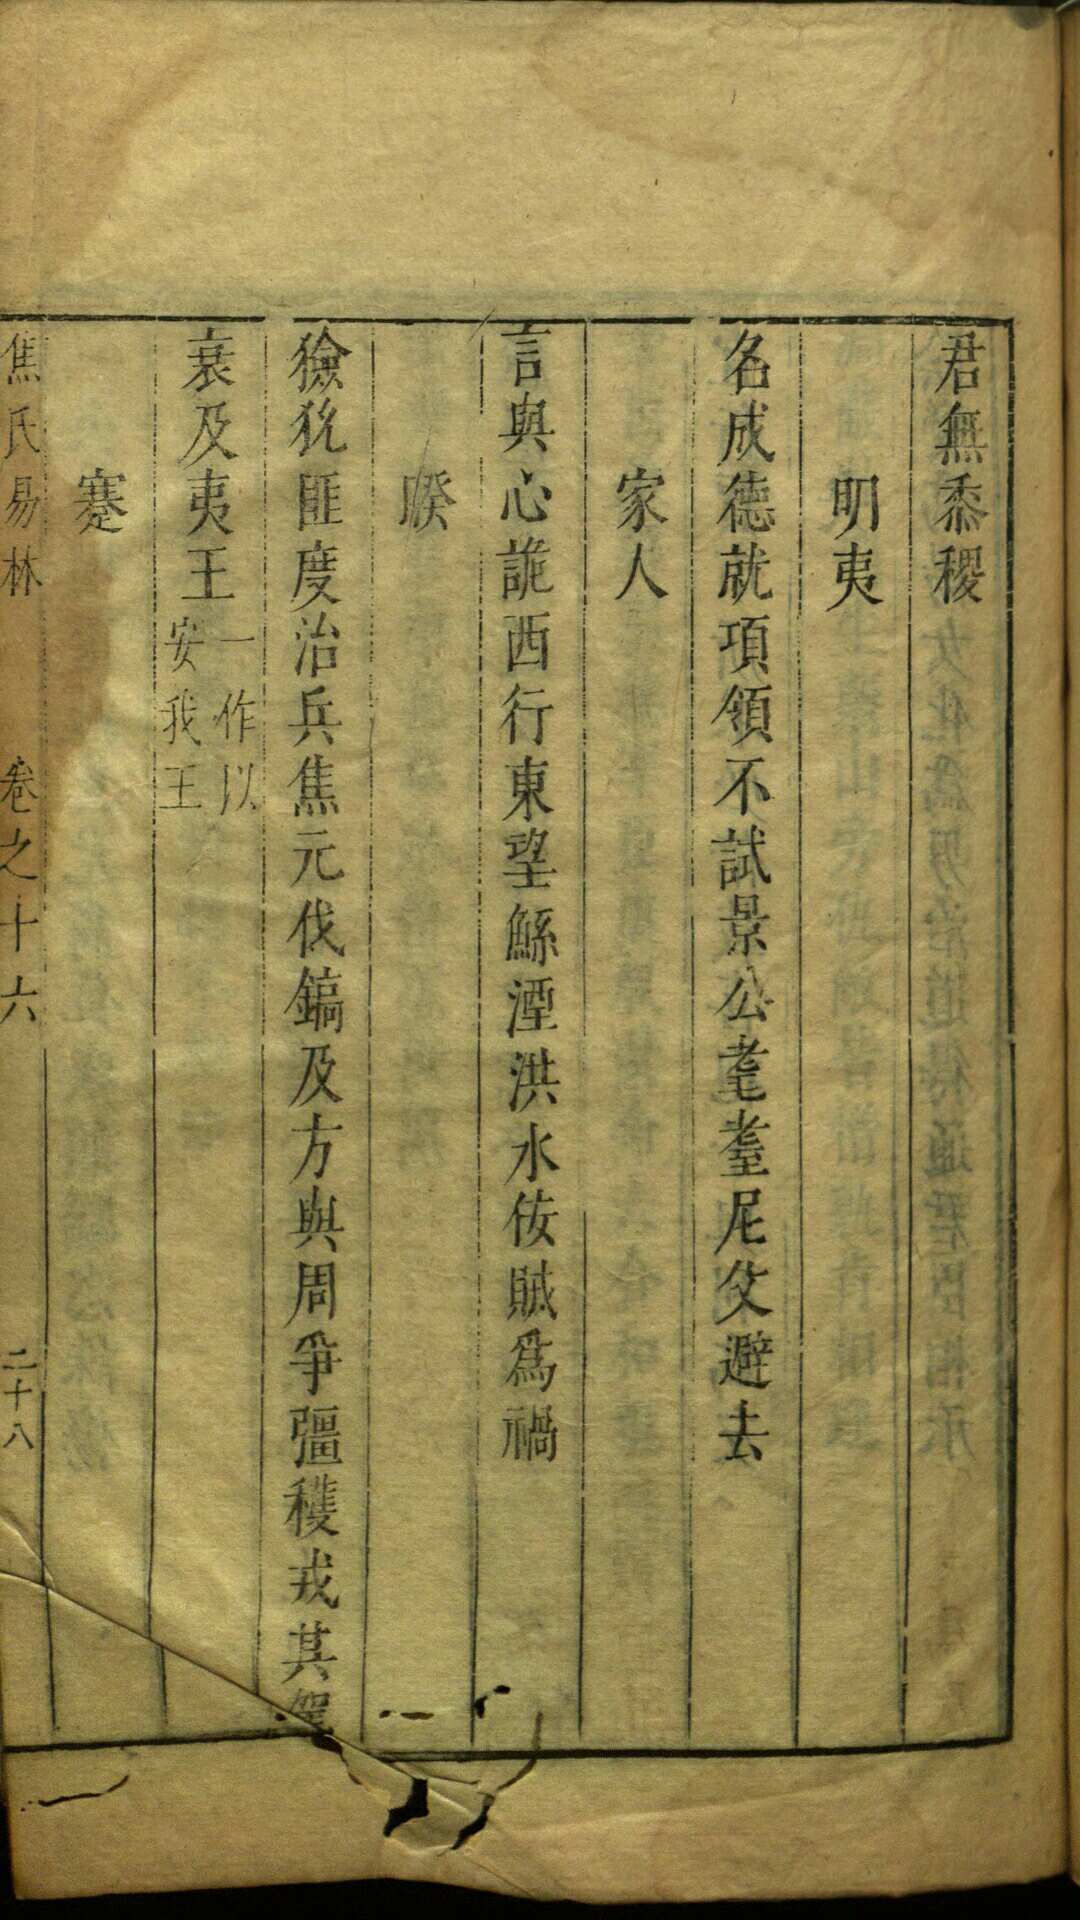 君無黍稷
明夷
名成德就項領不試景公耄耋尼父避去
家人
言與心詭西行東望鯀湮洪水佞賊爲禍
睽
獫狁匪度治兵焦元伐鎬及方與周爭彊穫戎其駕
衰及夷王一作以安我王
蹇
焦氏易林 卷之十六 二十八